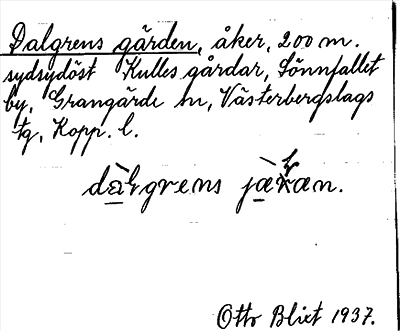 Dalgrens gården, åker, 200 m.
sydsydöst Kulles gårdar, Sönnfallet
by, Grangärde sn, Västerbergslags
tg, Kopp. l.
dàlgrens jæ̀ræn.
Otto Blixt 1937.